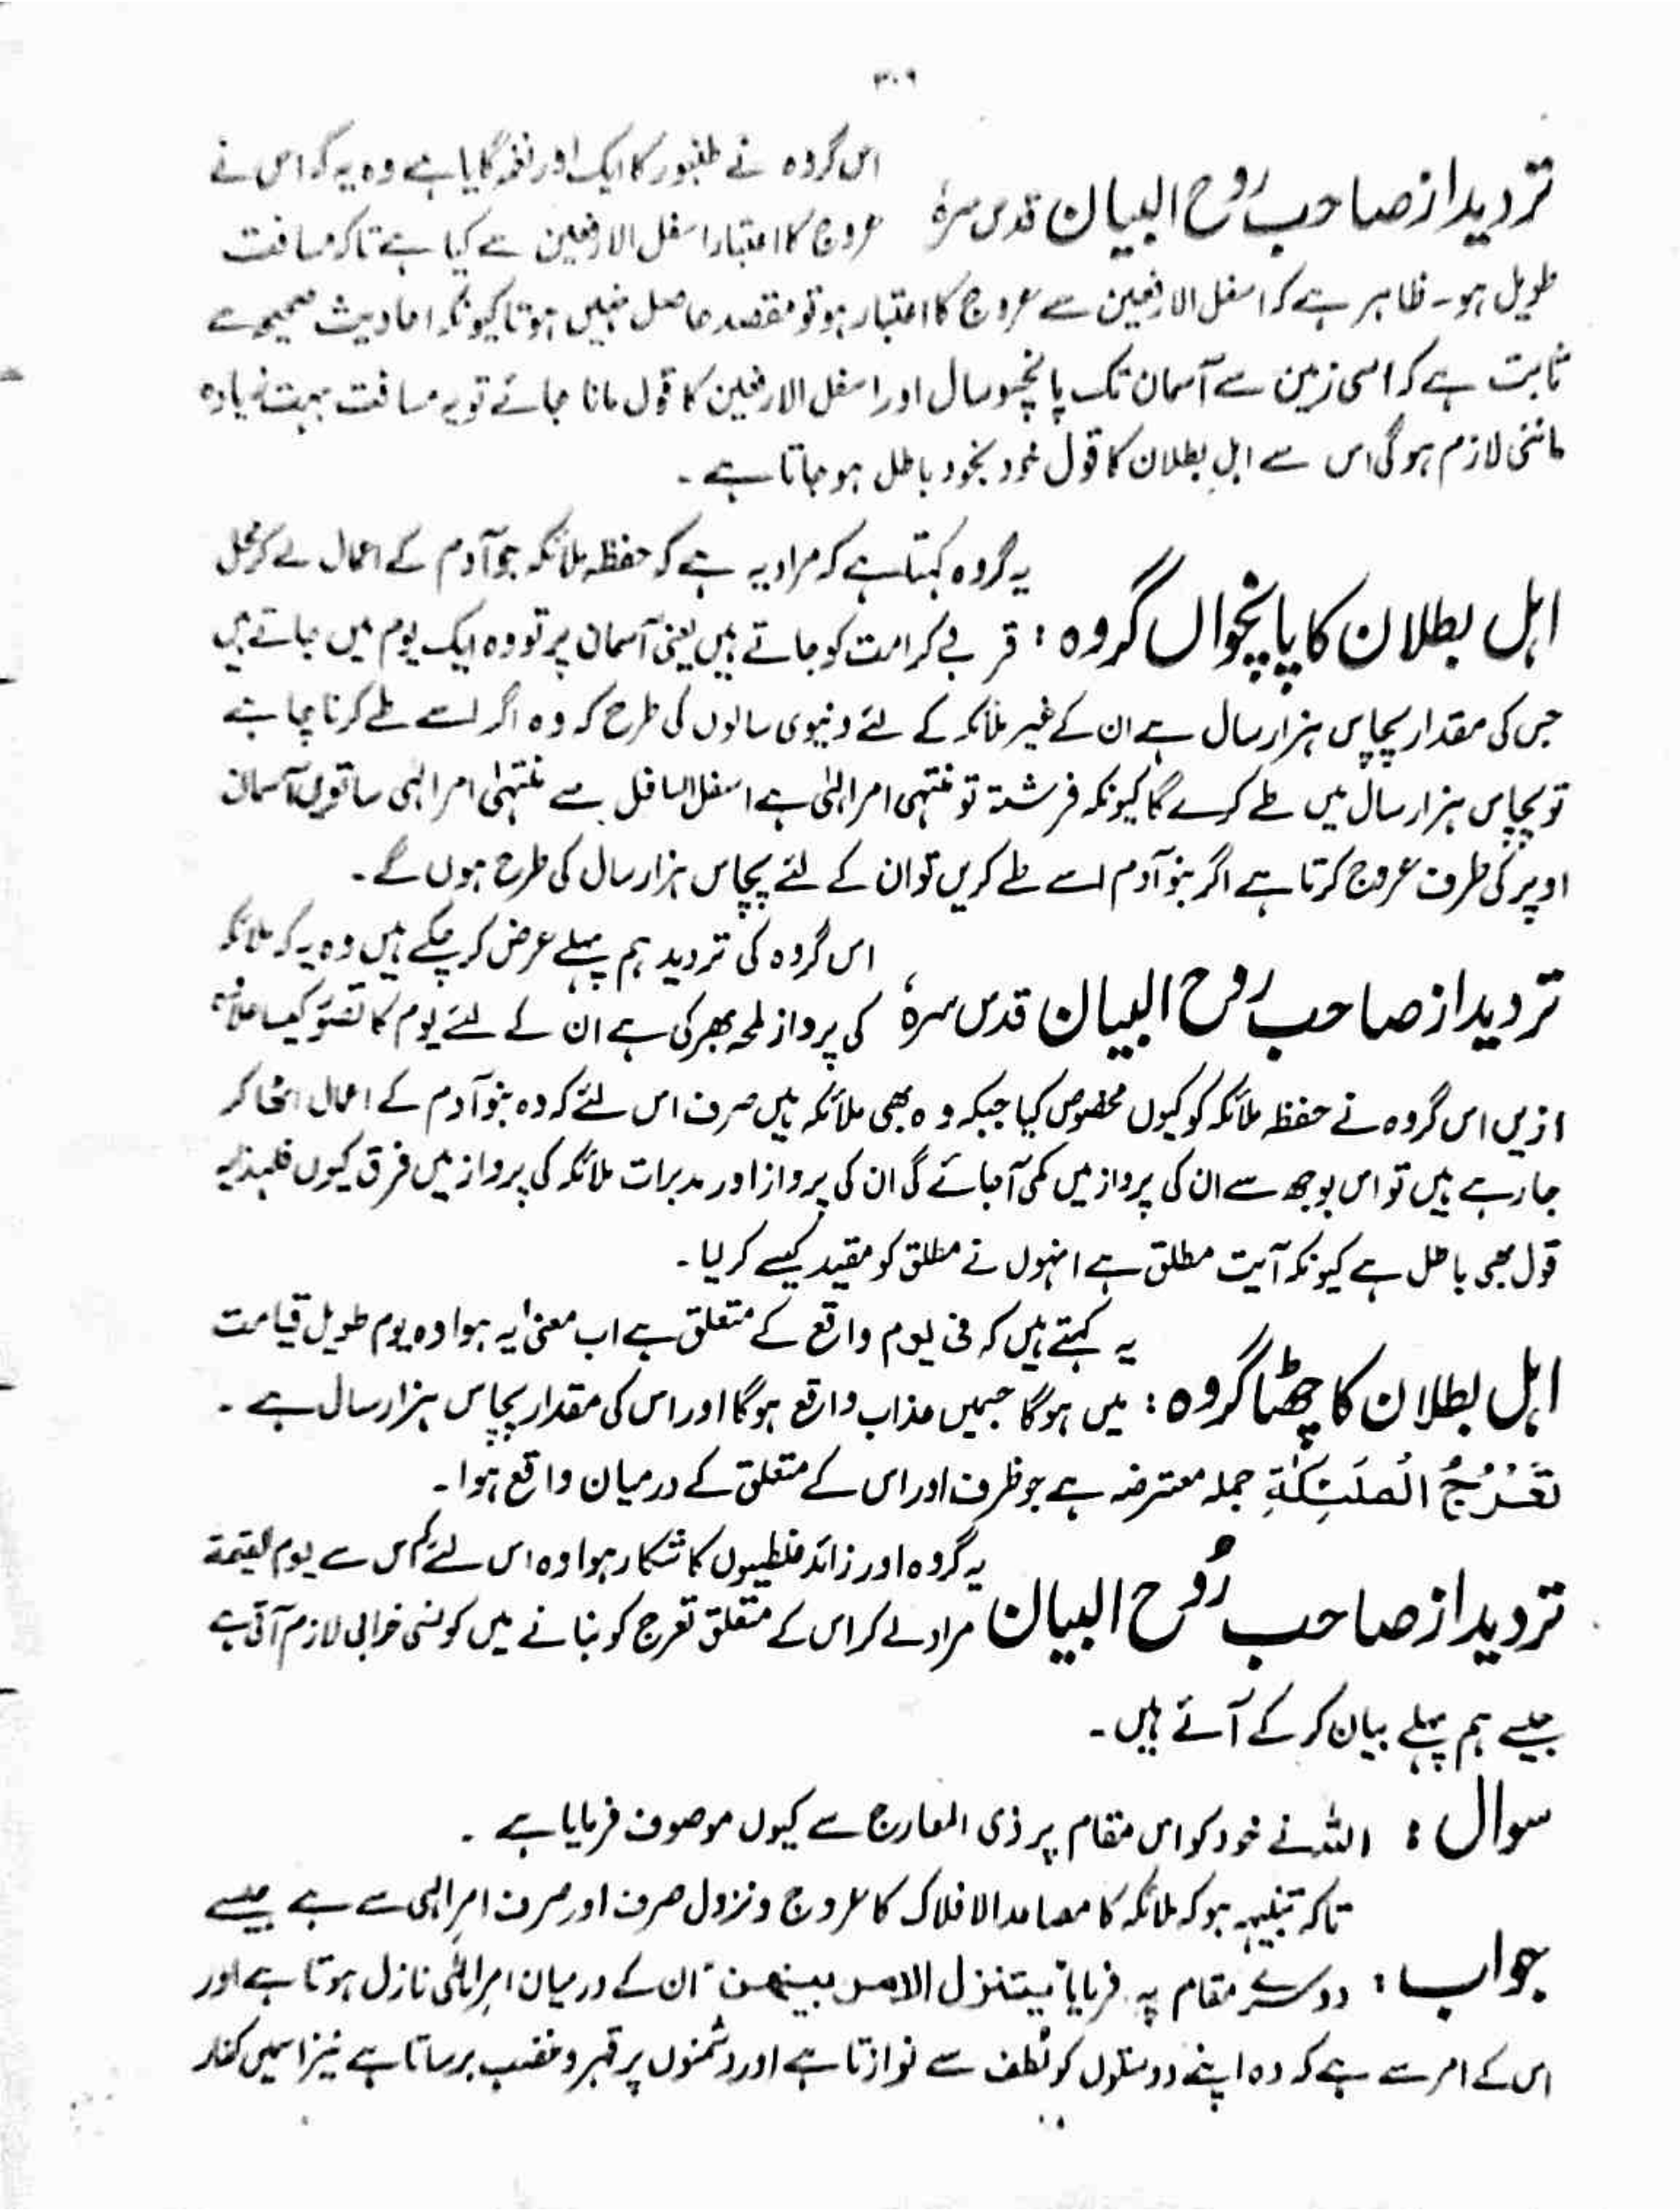 ۳۰۹
تردید از صاحب روح البیان قدس سرہٗ اس گروہ نے طنبور کا ایک اور نغمہ گایا ہے وہ یہ کہ اس نے
عروج کا اعتبار اسفل الارضین سے کیا ہے تاکہ مسافت
طویل ہو۔ ظاہر ہے کہ اسفل الارضین سے عروج کا اعتبار ہو تو مقصد حاصل نہیں ہوتا کیونکہ احادیث صحیحہ سے
ثابت ہے کہ اسی زمین سے آسمان تک پانچسو سال اور اسفل الارضین کا قول مانا جائے تو یہ مسافت بہت زیادہ
ماننی لازم ہوگی اس سے اہلِ بطلان کا قول خود بخود باطل ہو جاتا ہے ۔
اہل بطلان کا پانچواں گروہ : یہ گروہ کہتا ہے کہ مراد یہ ہے کہ حفظہ ملائکہ جو آدم کے اعمال لے کر محل
قربے کرامت کو جاتے ہیں یعنی آسمان پر تو وہ ایک یوم میں جاتے ہیں
جس کی مقدار پچاس ہزار سال ہے ان کے غیر ملائکہ کے لئے دنیوی سالوں کی طرح کہ وہ اگر اسے طے کرنا چاہے
تو پچاس ہزار سال میں طے کرے گا کیونکہ فرشتہ تو منتہی امر الٰہی ہے اسفل السافل سے منتہیٰ امر الٰہی ساتویں آسمان
اوپر کی طرف عروج کرتا ہے اگر بنو آدم اسے طے کریں تو ان کے لئے پچاس ہزار سال کی طرح ہوں گے ۔
تردید از صاحب روح البیان قدس سرہٗ اس گروہ کی تردید ہم پہلے عرض کر چکے ہیں وہ یہ کہ ملائکہ
کی پرواز لمحہ بھر کی ہے ان کے لئے یوم کا تصور کیسا علاوہ
ازیں اس گروہ نے حفظہ ملائکہ کو کیوں مخصوص کیا جبکہ وہ بھی ملائکہ ہیں صرف اس لئے کہ وہ بنو آدم کے اعمال اٹھا کر
جا رہے ہیں تو اس بوجھ سے ان کی پرواز میں کمی آ جائے گی ان کی پرواز اور مدبرات ملائکہ کی پرواز میں فرق کیوں فلہٰذا یہ
قول بھی باطل ہے کیونکہ آیت مطلق ہے انہوں نے مطلق کو مقید کیسے کر لیا ۔
اہل بطلان کا چھٹا گروہ : یہ کہتے ہیں کہ فی یوم واقع کے متعلق ہے اب معنیٰ یہ ہوا وہ یوم طویل قیامت
میں ہوگا جسمیں عذاب واقع ہوگا اور اس کی مقدار پچاس ہزار سال ہے ۔
تَعْرُجُ الْمَلٰئِكَةِ جملہ معترضہ ہے جو ظرف اور اس کے متعلق کے درمیان واقع ہوا ۔
تردید از صاحب رُوح البیان یہ گروہ اور زائد غلطیوں کا شکار ہوا وہ اس لئے کہ اس سے یوم القیمۃ
مراد لے کر اس کے متعلق تعرج کو بنانے میں کونسی خرابی لازم آتی ہے
جیسے ہم پہلے بیان کر کے آئے ہیں ۔
سوال : اللہ نے خود کو اس مقام پر ذی المعارج سے کیوں موصوف فرمایا ہے ۔
جواب : تاکہ تنبیہہ ہو کہ ملائکہ کا مصاعد الافلاک کا عروج و نزول صرف اور صرف امر الٰہی سے ہے جیسے
دوسرے مقام پہ فرمایا یتنزل الامر بینھن ان کے درمیان امر الٰہی نازل ہوتا ہے اور
اس کے امر سے ہے کہ وہ اپنے دوستوں کو لُطف سے نوازتا ہے اور دشمنوں پر قہر و غضب برساتا ہے نیز اسمیں کفار